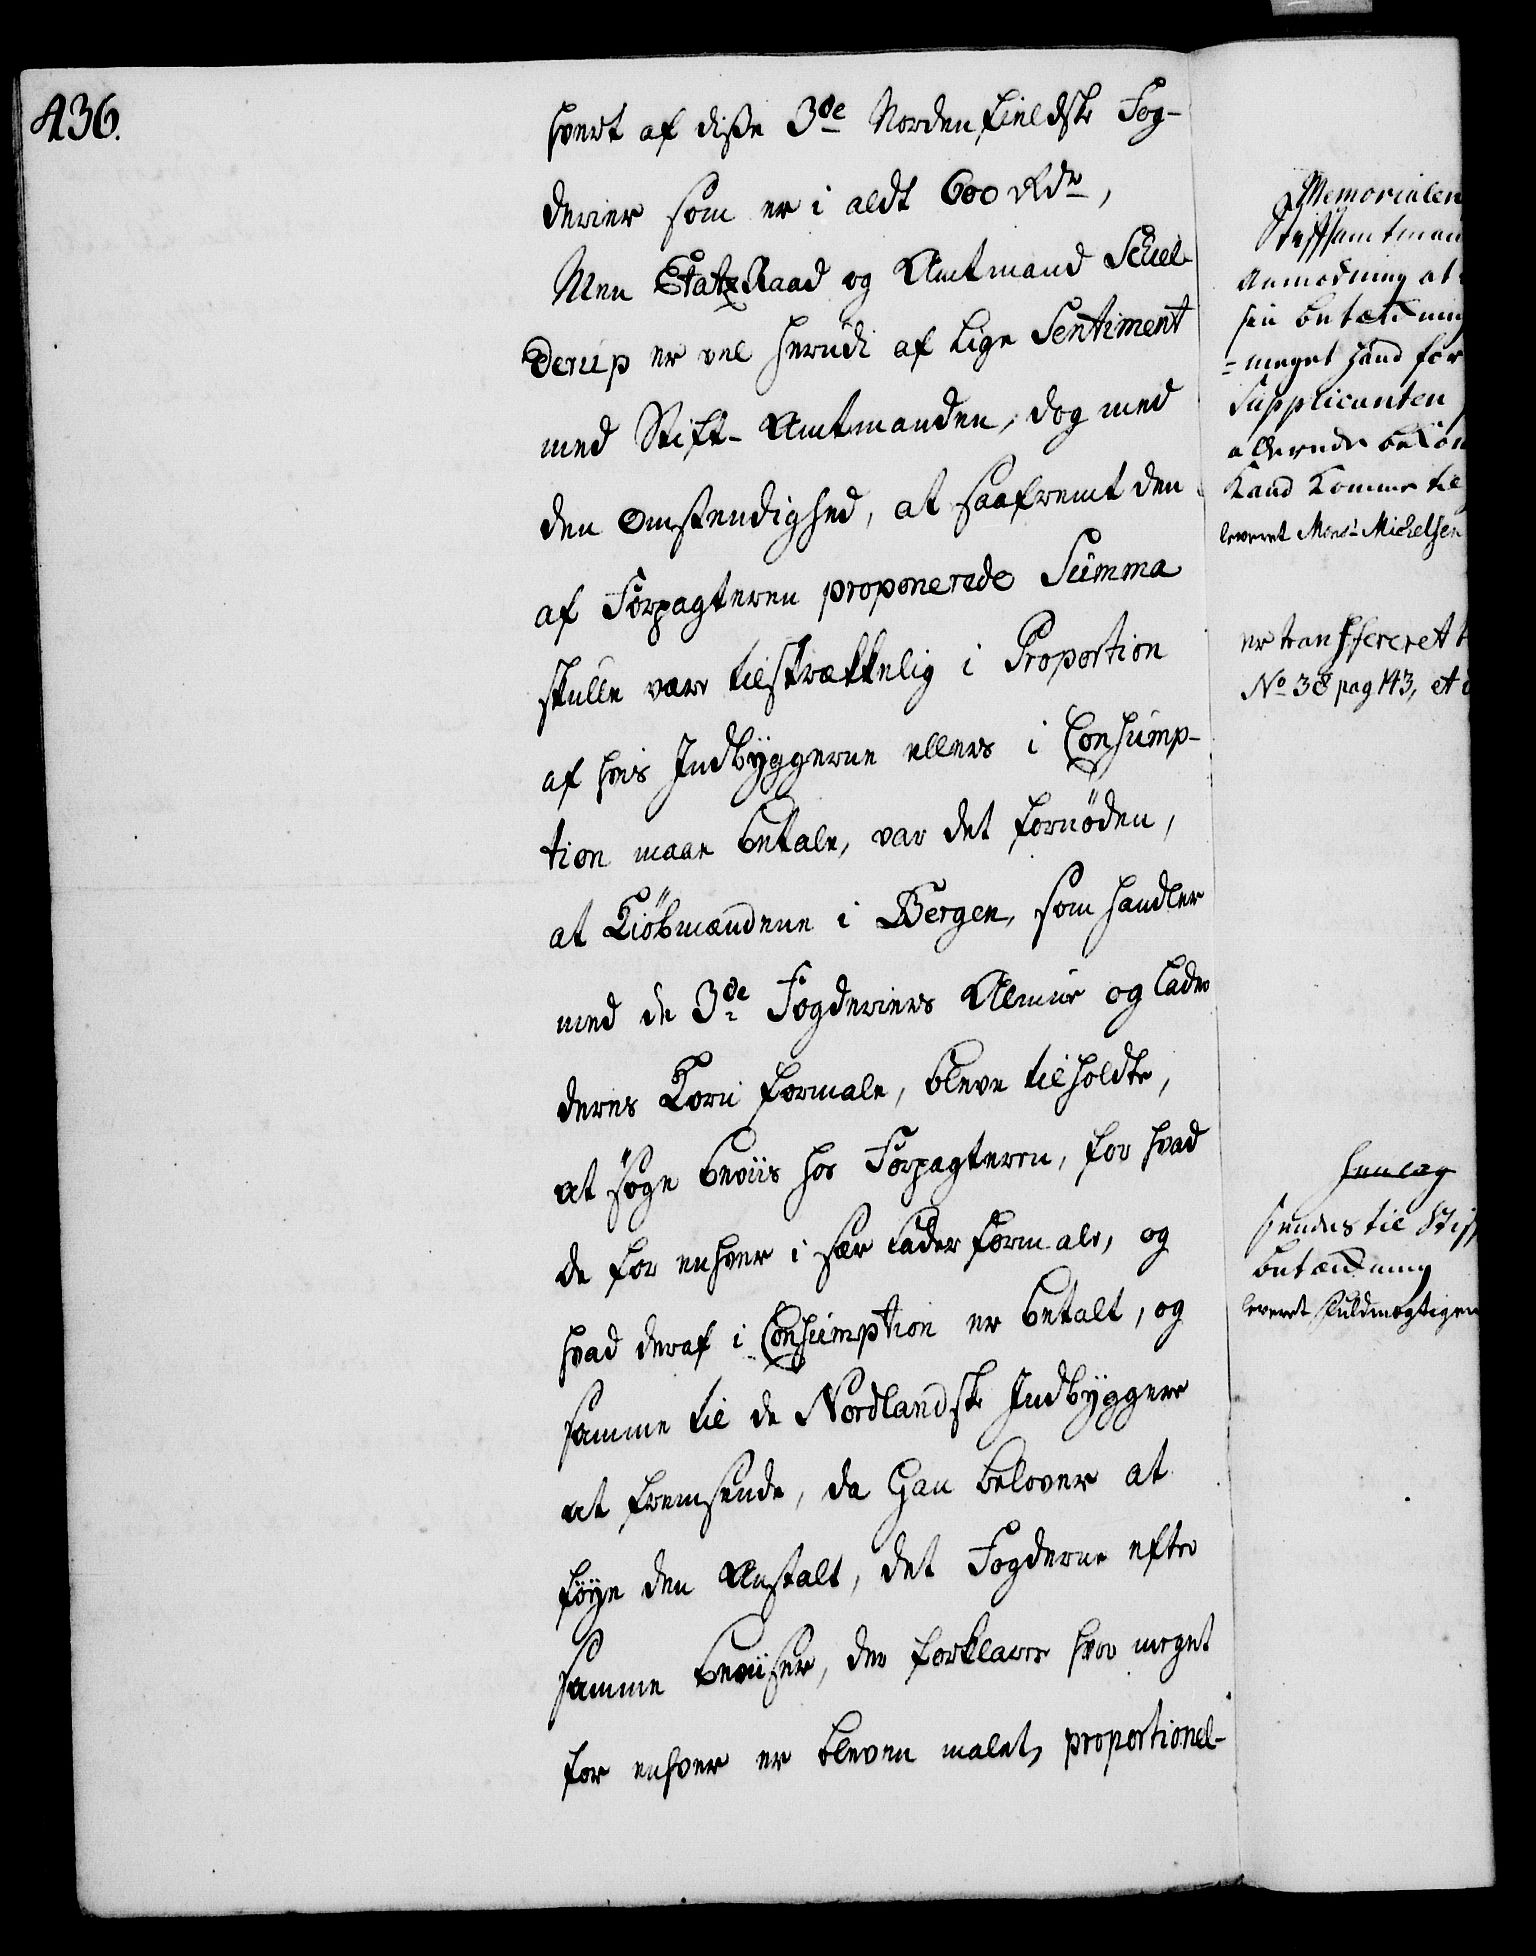 436.
hvert af disse 3de Nordenfieldske Fog-
derier som er i aldt 600 Rdr,
Men Etatz Raad og Amtmand Schiel-
derup er vel herudi af lige Sentiment
med Stift-Amtmanden, dog med
den Omstendighed, at saafremt den
af Forpagteren proponerede Summa
skulle være tilstrækkelig i Proportion
af hvis Indbyggerne ellers i Consump-
tion maae betale, var det fornöden,
at Kiöbmændene i Bergen, som handler
med de 3de Fogderiers Almue og lader
deres Korn formale, bleve tilholdte,
at söge beviis hos Forpagteren, for hvad
de for enhver i sær lader formale, og
hvad deraf i Consumption er betalt, og
samme til de Nordlandske Indbyggere
at fremsende, da Han belover at
föye den Anstalt, det Fogderne efter
samme beviiser, der forklarer hvor meget
for enhver er bleven malet, proportionel-
Memorialen
Stiftsamtman
Anmodning at
sin betænkning
-meget hand for
Supplicanten
allerede bekom
kand komme til
leveret Monsr Michelsen
er transfereret t
No 38 pag 143, et
henlag
sendes til Stif
betænkning
leveret Fuldmægtigen